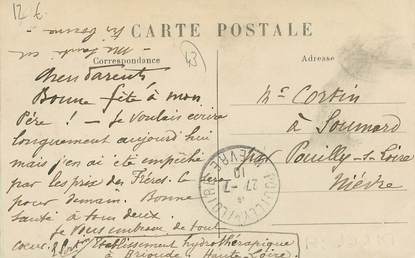 12 €
CARTE POSTALE
Correspondance
Adresse
43
Chers Parents
Bonne fête à mon
Père ! - Je voulais écrire
longuement aujourd'hui
mais j'en ai été empêché
par les prix des Frères.
pour demain. Bonne
santé à tous deux.
Je vous embrasse de tout
coeur.
Etablissement hydrothérapique
à Brioude - Haute-Loire
Mr Corbin
à Soumard
par Pouilly-s-Loire
Nièvre
POUILLY-S-LOIRE
NIEVRE
27 - 7
10